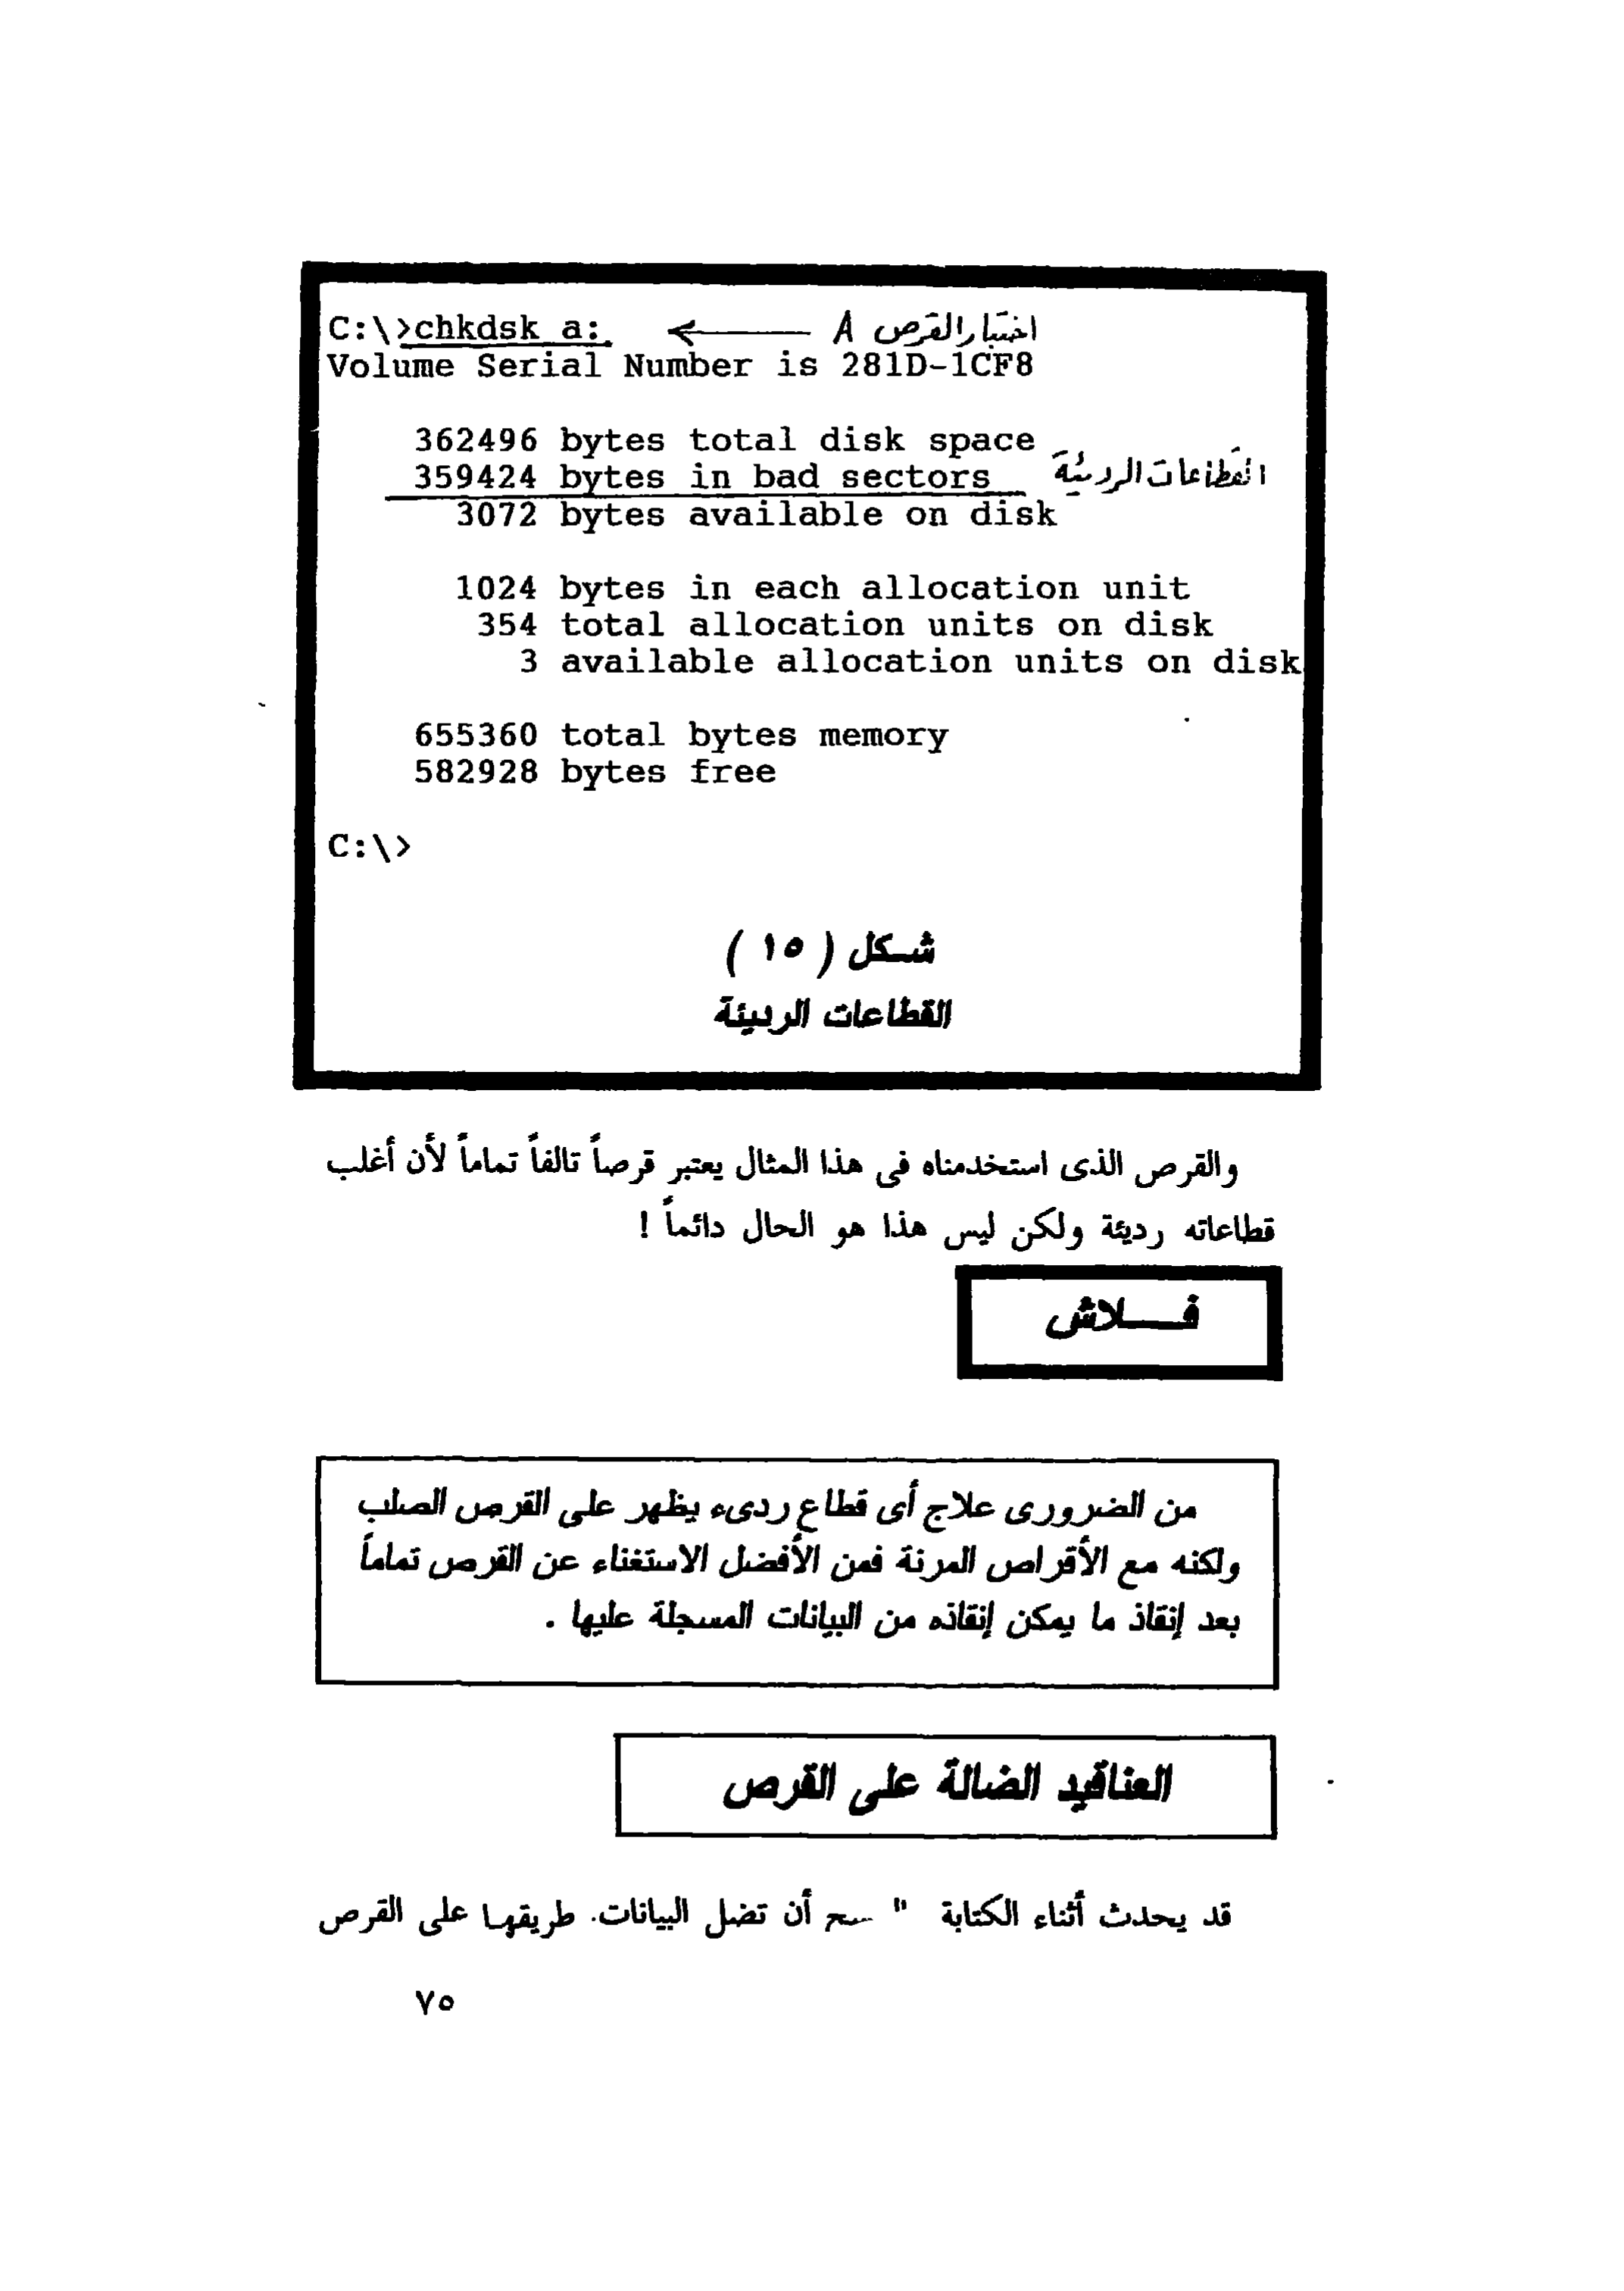 C:\>chkdsk a: ← اختبار القرص A
Volume Serial Number is 281D-1CF8
362496 bytes total disk space
359424 bytes in bad sectors القطاعات الرديئة
3072 bytes available on disk
1024 bytes in each allocation unit
354 total allocation units on disk
3 available allocation units on disk
655360 total bytes memory
582928 bytes free
C:\>
شكل ( ١٥ )
القطاعات الرديئة
والقرص الذى استخدمناه فى هذا المثال يعتبر قرصاً تالفاً تماماً لأن أغلب
قطاعاته رديئة ولكن ليس هذا هو الحال دائماً !
فـــلاش
من الضرورى علاج أى قطاع ردىء يظهر على القرص الصلب
ولكنه مع الأقراص المرنة فمن الأفضل الاستغناء عن القرص تماماً
بعد إنقاذ ما يمكن إنقاذه من البيانات المسجلة عليها .
العناقيد الضالة على القرص
قد يحدث أثناء الكتابة أن تضل البيانات طريقها على القرص
٧٥